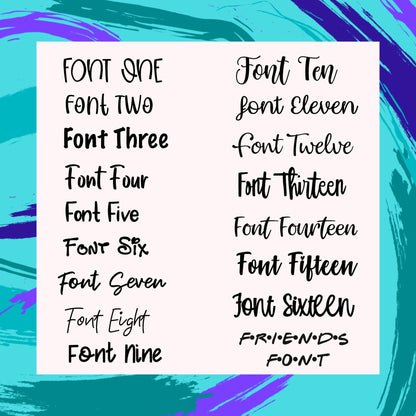 FONT ONE
Font TWO
Font Three
Font Four
Font Five
Font Six
Font Seven
Font Eight
Font Nine
Font Ten
Font Eleven
Font Twelve
Font Thirteen
Font Fourteen
Font Fifteen
Font Sixteen
F•R•I•E•N•D•S
F•O•N•T